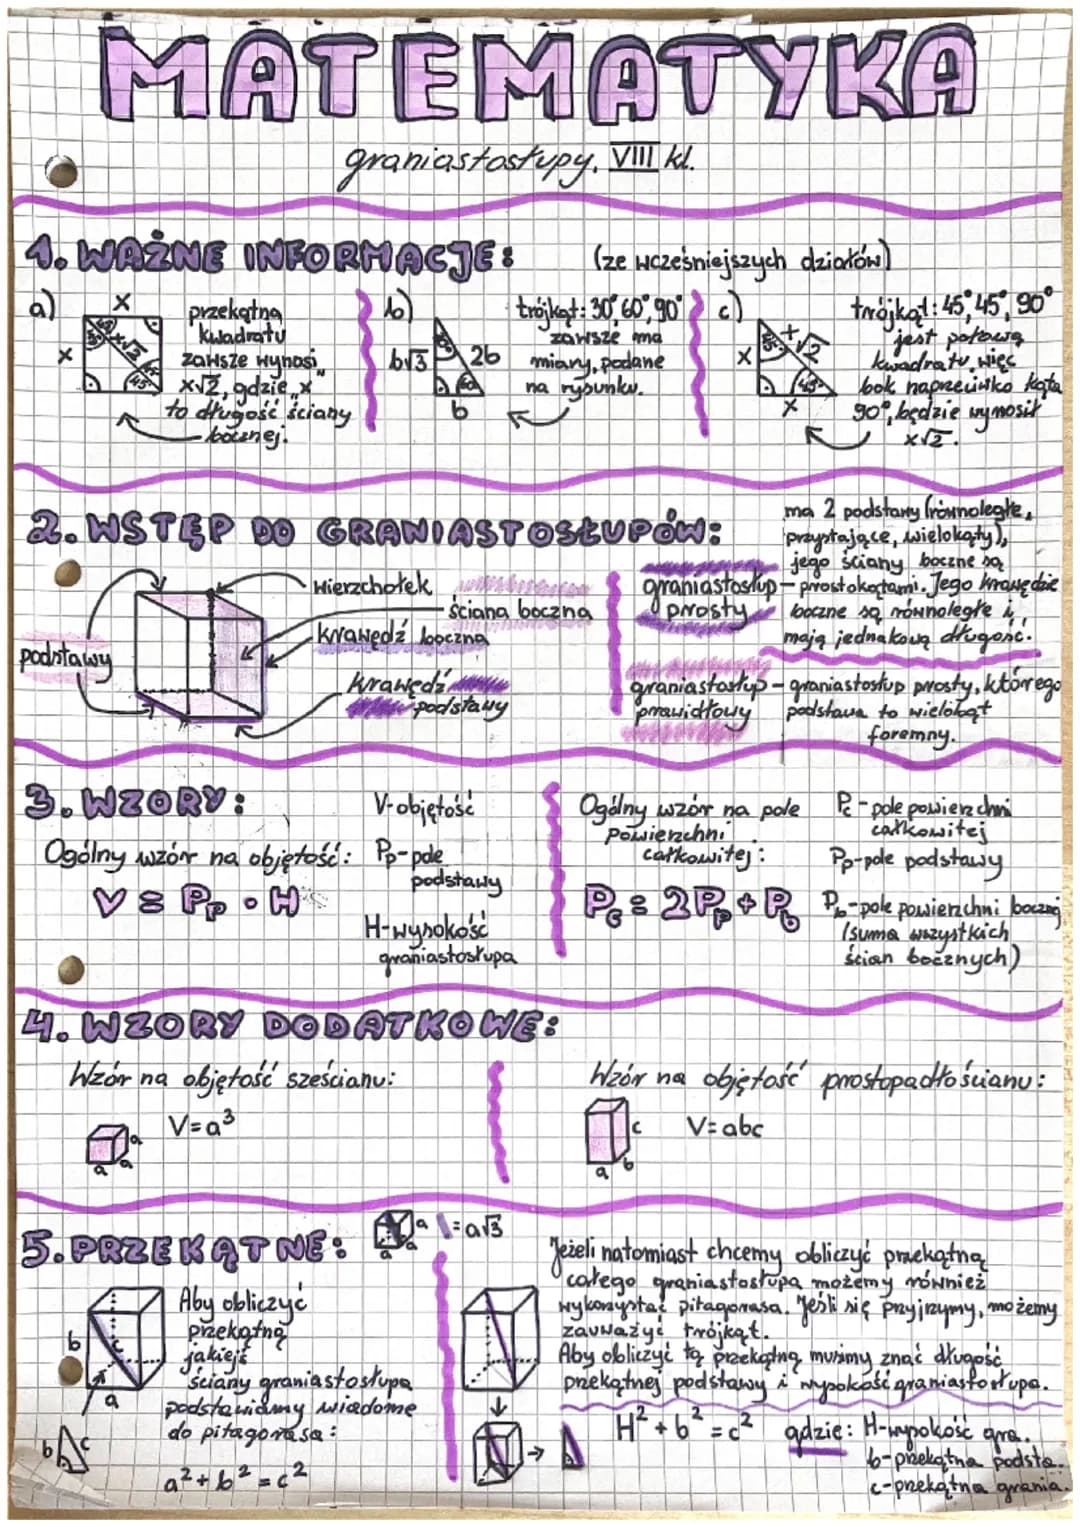 MATEMATYKA
graniastosłupy, VIII kl.
1. WAŻNE INFORMACJE:
(ze wcześniejszych działów)
a)
x
x
x√2
45°
45°
45°
45°
przekątna
kwadratu
zawsze wynosi
x√2, gdzie „x"
to długość ściany
bocznej.
b)
b√3
2b
60°
b
trójkąt: 30° 60°, 90°
zawsze ma
miary, podane
na rysunku.
c)
x
x√2
45°
45°
x
trójkąt: 45°, 45°, 90°
jest połową
kwadratu, więc
bok naprzeciwko kąta
90°, będzie wynosił
x√2.
2. WSTĘP DO GRANIASTOSŁUPÓW:
podstawy
wierzchołek
ściana boczna
krawędź boczna
krawędź
podstawy
graniastosłup
prosty
ma 2 podstawy (równoległe,
przystające, wielokąty),
jego ściany boczne są
– prostokątami. Jego krawędzie
boczne są równoległe i
mają jednakową długość.
graniastosłup
prawidłowy
– graniastosłup prosty, którego
podstawa to wielokąt
foremny.
3. WZORY:
Ogólny wzór na objętość:
V = Pp • H
V-objętość
Pp-pole
podstawy
H-wysokość
graniastosłupa
Ogólny wzór na pole
powierzchni
całkowitej:
Pc = 2Pp + Pb
Pc - pole powierzchni
całkowitej
Pp-pole podstawy
Pb-pole powierzchni bocznej
(suma wszystkich
ścian bocznych)
4. WZORY DODATKOWE:
Wzór na objętość sześcianu:
V=a³
a
a
a
Wzór na objętość prostopadłościanu:
V=abc
c
b
a
5. PRZEKĄTNE:
a
a
a
= a√3
b
c
a
Aby obliczyć
przekątną
jakiejś
ściany graniastosłupa
podstawiamy wiadome
do pitagorasa:
b
c
a² + b² = c²
Jeżeli natomiast chcemy obliczyć przekątną
całego graniastosłupa możemy również
wykorzystać pitagorasa. Jeśli się przyjrzymy, możemy
zauważyć trójkąt.
Aby obliczyć tą przekątną musimy znać długość
przekątnej podstawy i wysokość graniastosłupa.
H² + b² = c²
gdzie: H-wysokość gra.
b-przekątna podsta.
c-przekątna grania.